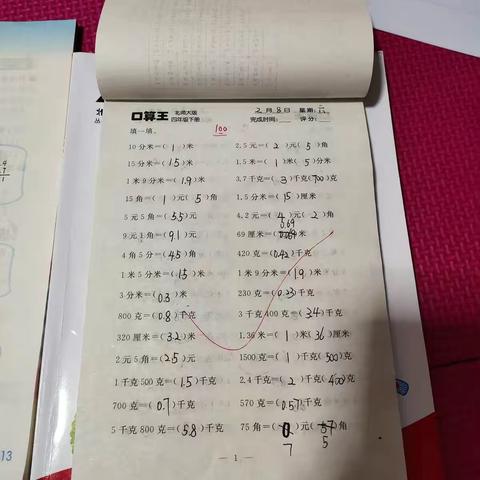 口算王 北师大版 四年级下册 2月8日 星期:三
完成时间: 评分:
填一填。 100
10分米=(1)米 2.5元=(2)元(5)角
15分米=(1.5)米 1.5米=(1)米(5)分米
1米9分米=(1.9)米 3.7千克=(3)千克(700)克
15角=(1)元(5)角 1.5分米=(15)厘米
5元5角=(5.5)元 4.2元=(4)元(2)角
9元1角=(9.1)元 69厘米=(0.69)米
4角5分=(45)分 420克=(0.42)千克
1米5分米=(15)米 1米9分米=(1.9)米
3分米=(0.3)米 230克=(0.23)千克
800克=(0.8)千克 3千克400克=(3.4)千克
320厘米=(3.2)米 1.36米=(1)米(36)厘米
2元5角=(2.5)元 1500克=(1)千克(500)克
1千克500克=(1.5)千克 2.4千克=(2)千克(400)克
700克=(0.7)千克 570克=(0.57)千克
5千克800克=(5.8)千克 75角=( )元( )角
7 5
— 1 —
13